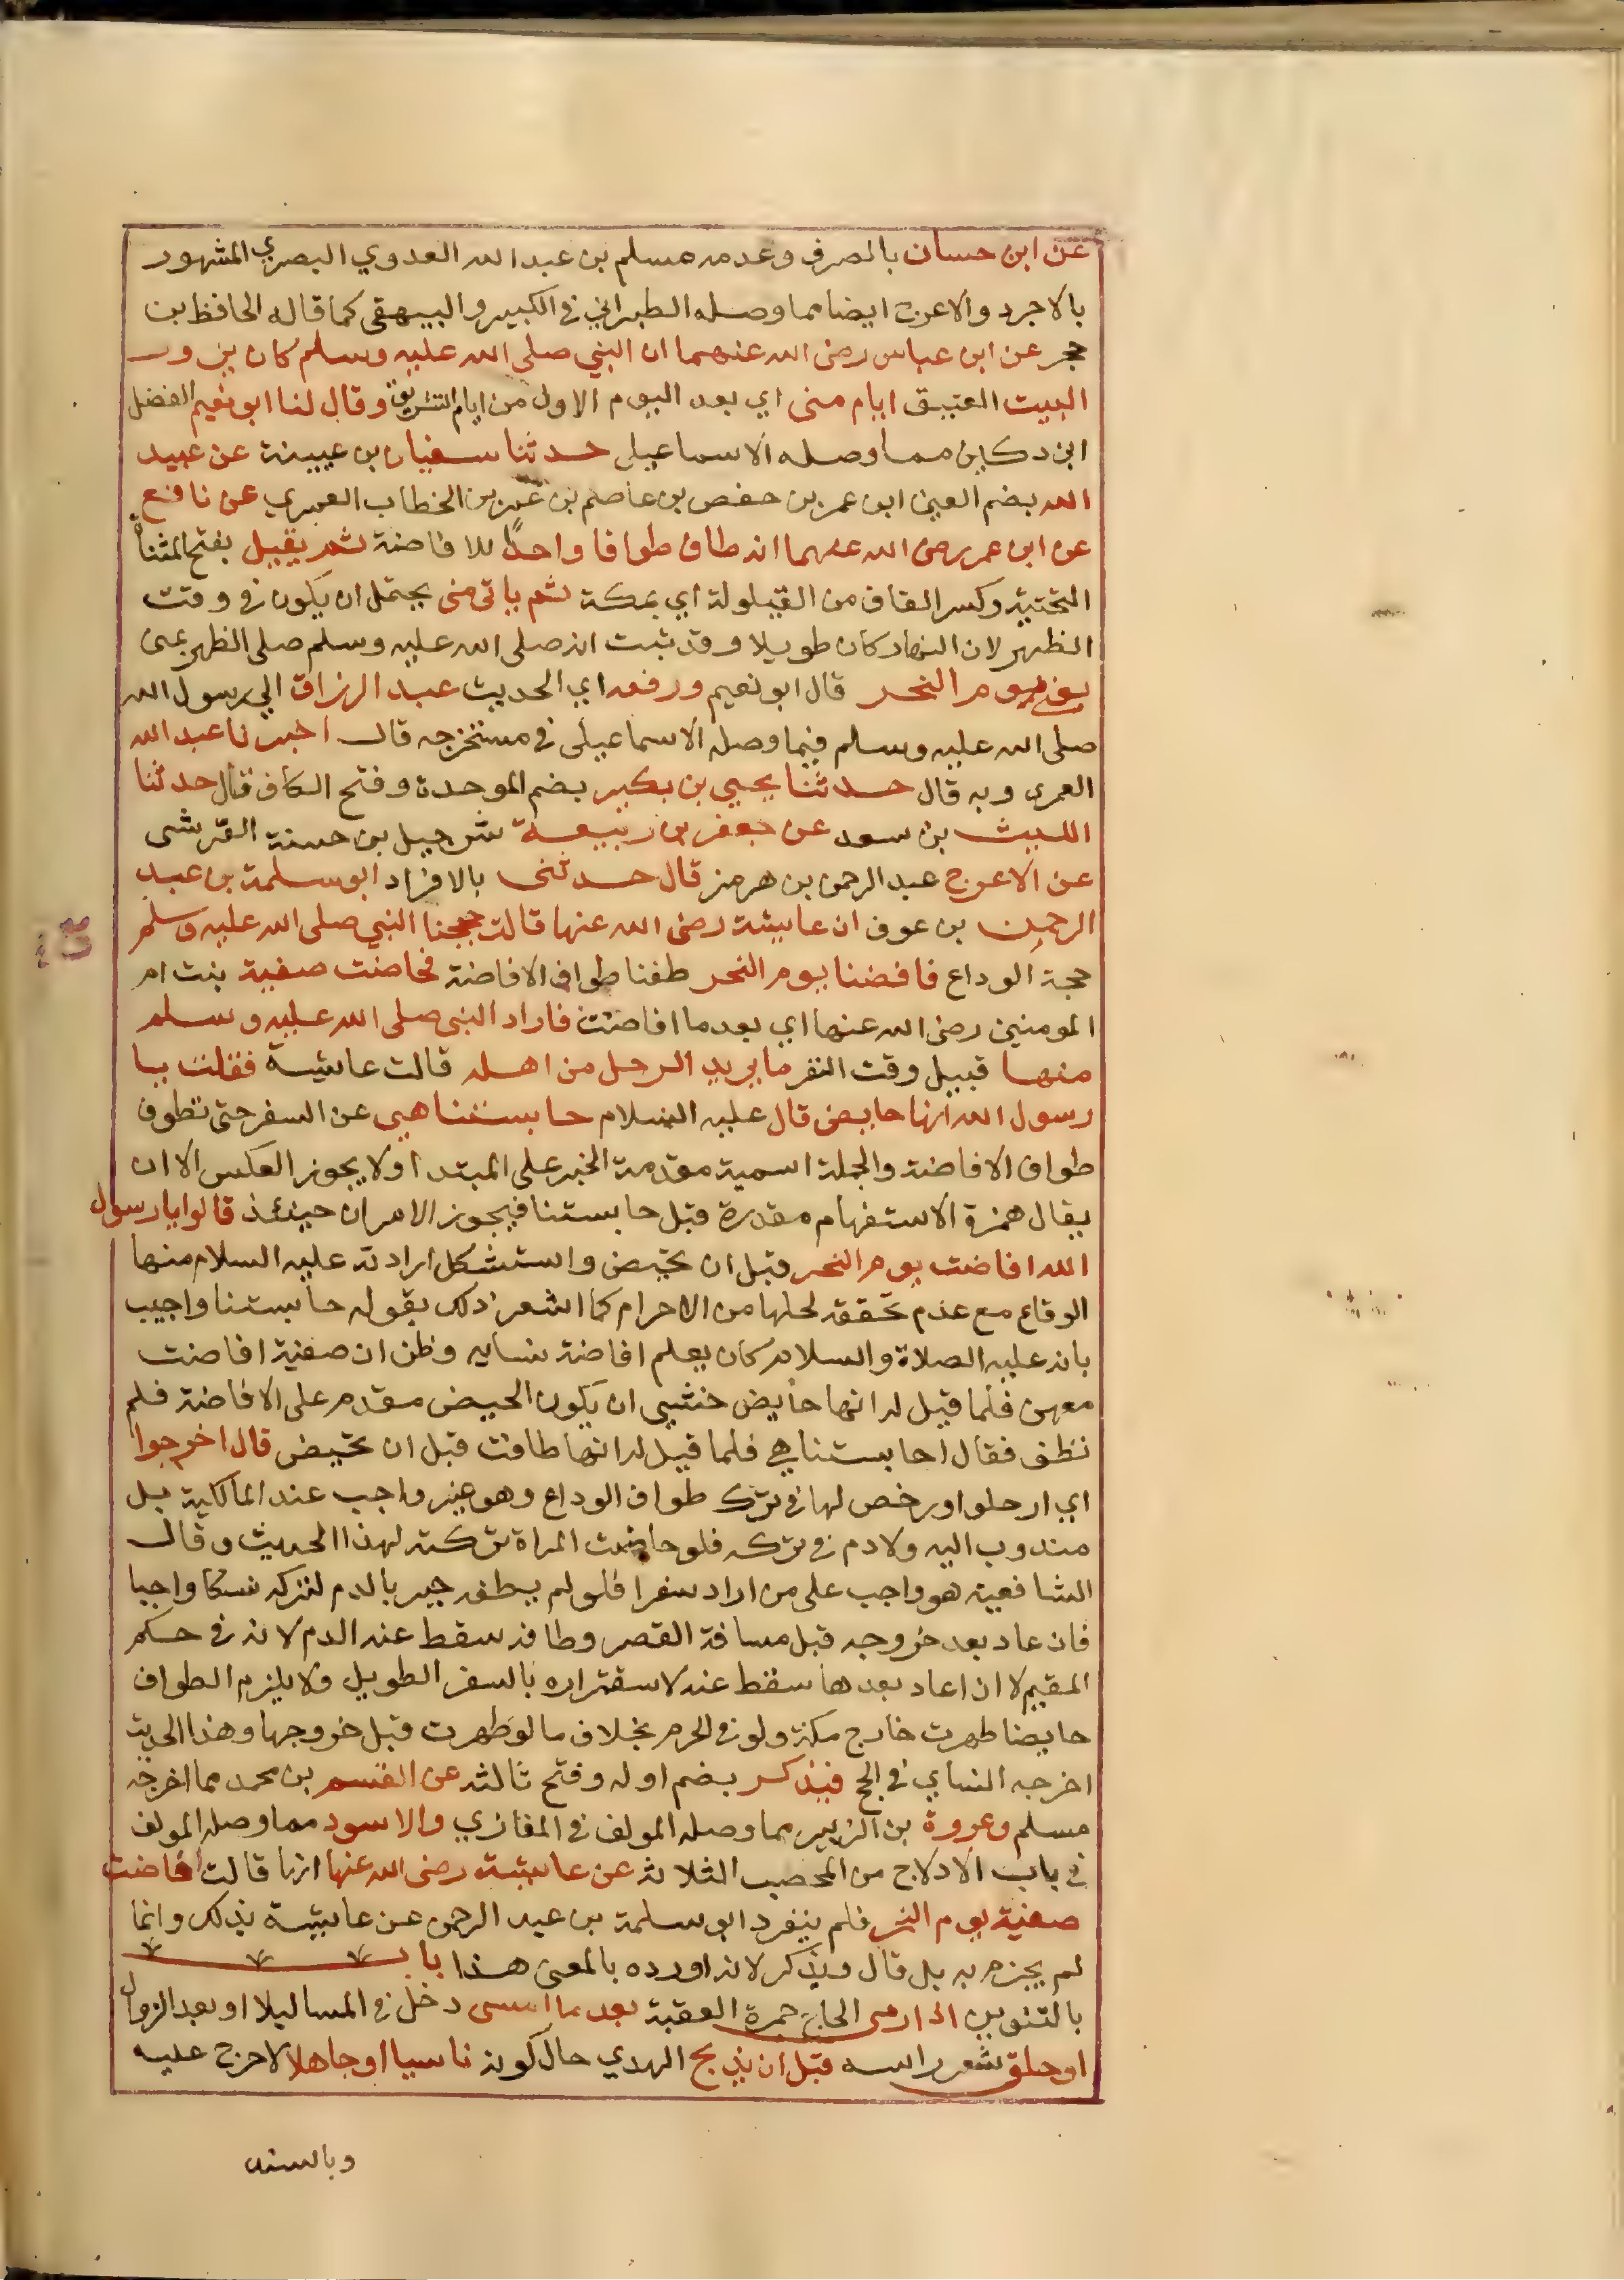 عن ابن حسان بالصرف وعدمه مسلم بن عبد الله العدوي البصري المشهور
بالاجرد والاعرج ايضا مما وصله الطبراني في الكبير والبيهقي كما قاله الحافظ بن
حجر عن ابن عباس رضي الله عنهما ان النبي صلى الله عليه وسلم كان يزور
البيت العتيق ايام منى اي بعد اليوم الاول من ايام التشريق وقال لنا ابو نعيم الفضل
ابن دكين مما وصله الاسماعيلي حدثنا سفيان بن عيينة عن عبيد
الله بضم العين ابن عمر بن حفص بن عاصم بن عمر بن الخطاب العمري عن نافع
عن ابن عمر رضي الله عنهما انه طاف طوافا واحدًا للافاضة ثم يقيل بفتح المثناة
التحتية وكسر القاف من القيلولة اي بمكة ثم ياتي منى يحتمل ان يكون في وقت
الظهر لان النهار كان طويلا وقد ثبت انه صلى الله عليه وسلم صلى الظهر بمنى
يعني يوم النحر قال ابو نعيم ورفعه اي الحديث عبد الرزاق الي رسول الله
صلى الله عليه وسلم فيما وصله الاسماعيلي في مستخرجه قال اخبرنا عبد الله
العمري وبه قال حدثنا يحيي بن بكير بضم الموحدة وفتح الكاف قال حدثنا
الليث بن سعد عن جعفر بن ربيعة شرحبيل بن حسنة القرشي
عن الاعرج عبد الرحمن بن هرمز قال حدثني بالافراد ابو سلمة بن عبد
الرحمن بن عوف ان عايشة رضي الله عنها قالت حججنا النبي صلى الله عليه وسلم
حجة الوداع فافضنا يوم النحر طفنا طواف الافاضة فحاضت صفية بنت ام
المومنين رضي الله عنها اي بعد ما افاضت فاراد النبي صلى الله عليه وسلم
منها قبيل وقت النفر ما يريد الرجل من اهله قالت عايشة فقلت يا
رسول الله انها حايض قال عليه السلام حابستنا هي عن السفر حتى تطوف
طواف الافاضة والجملة اسمية مقدمة الخبر على المبتدا ولا يجوز العكس الا ان
يقال همزة الاستفهام مقدرة قبل حابستنا فيجوز الامران حينئذ قالوا يا رسول
الله افاضت يوم النحر قبل ان تحيض واستشكل ارادته عليه السلام منها
الوقاع مع عدم تحققه لحلها من الاحرام كما اشعر ذلك بقوله حابستنا واجيب
بانه عليه الصلاة والسلام كان يعلم افاضة نسايه وظن ان صفية افاضت
معهن فلما قيل له انها حايض خشي ان يكون الحيض مقدم على الافاضة فلم
تطف فقال احابستنا هي فلما قيل له انها طافت قبل ان تحيض قال اخرجوا
اي ارحلوا ورخص لها في ترك طواف الوداع وهو غير واجب عند المالكية بل
مندوب اليه ولا دم في تركه فلو حاضت المراة تركته لهذا الحديث وقال
الشافعية هو واجب على من اراد سفرا فلو لم يطف جبر بالدم لتركه نسكا واجبا
فان عاد بعد خروجه قبل مسافة القصر وطاف سقط عنه الدم لانه في حكم
المقيم لا ان اعاد بعدها سقط عنه لاستقراره بالسفر الطويل ولا يلزم الطواف
حايضا طهرت خارج مكة ولو في الحرم بخلاف ما لو طهرت قبل خروجها وهذا الحديث
اخرجه النساي في الحج فيذكر بضم اوله وفتح ثالثه عن القسم بن محمد مما اخرجه
مسلم وعروة بن الزبير مما وصله المولف في المغازي والاسود مما وصله المولف
في باب الادلاج من المحصب الثلاثة عن عايشة رضي الله عنها انها قالت افاضت
صفية يوم النحر فلم ينفرد ابو سلمة بن عبد الرحمن عن عايشة بذلك وانما
لم يجزم به بل قال ويذكر لانه اورده بالمعنى هذا باب
بالتنوين اذا رمى الحاج جمرة العقبة بعد ما امسى دخل في المسا ليلا او بعد الزوال
او حلق شعر راسه قبل ان يذبح الهدي حال كونه ناسيا او جاهلا لا حرج عليه
وبالسند